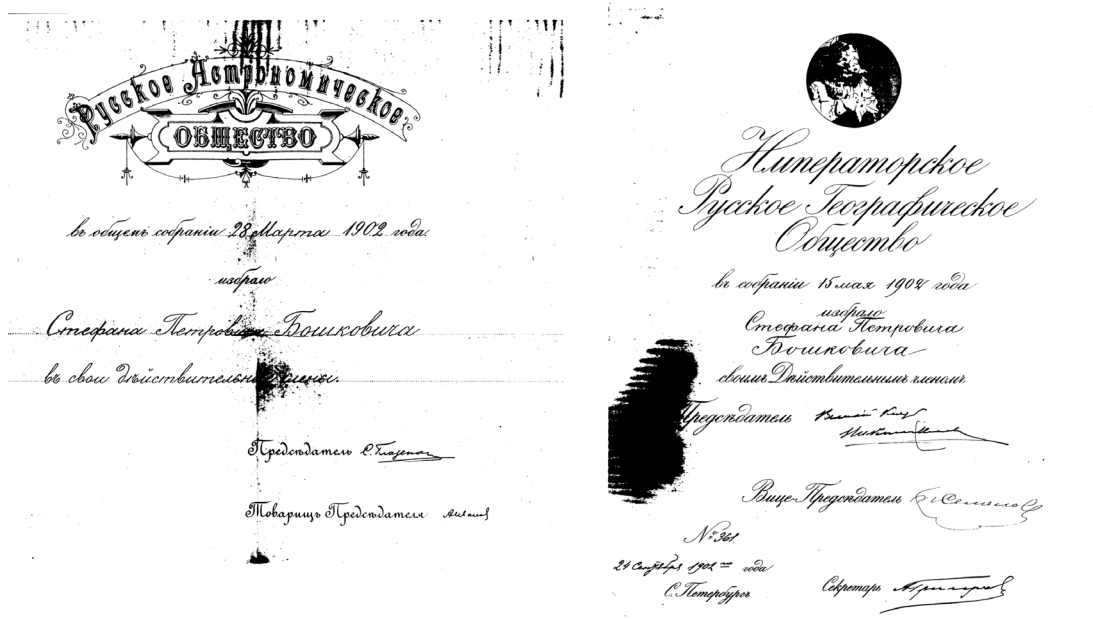 Русское Астрономическое
ОБЩЕСТВО
въ общемъ собраніи 28 Марта 1902 года
избрало
Стефана Петровича Бошковича
въ свои дѣйствительные члены.
Предсѣдатель
Товарищъ Предсѣдателя
Императорское
Русское Географическое
Общество
въ собраніи 15 мая 1902 года
избрало
Стефана Петровича
Бошковича
своимъ Дѣйствительнымъ членомъ
Предсѣдатель
Вице-Предсѣдатель
№ 361.
24 Сентября 1902 года
С. Петербургъ
Секретарь